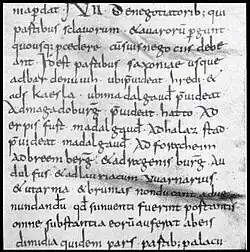 mapdat; VII. Denegotiatorib; qui
partibus sclavorum & avarorũ pergunt
quousq; pcedere cũ suis negociis debe
ant id est partibus saxoniae usque
ad bardenuuih. ubi pvideat hredi. &
ad skaesla. ubi madalgaud pvideat
Ad magadoburg pvideat hatto. Ad
erpisfurt madalgaud. Ad halaz stad
pvideat madalgaud. Ad foracheim
Ad breemberg. & ad ragenisburg. Au
dulfus & ad lauriacum vuarnarius
& ut arma & brunias non ducant ad ue
nundandũ qd si inuenti fuerint portantes
omne substantia eorũ auferat ab eis
dimidia quidem pars partib; palacii